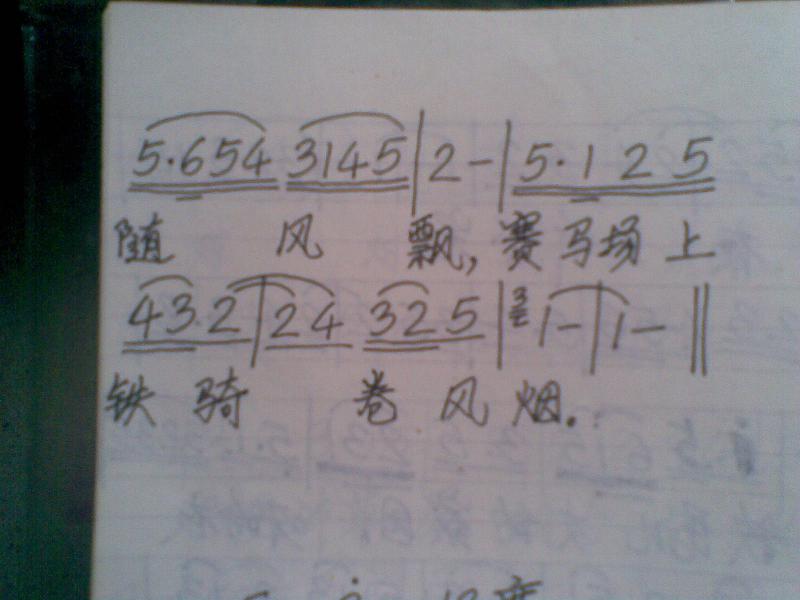 5·654 3145|2-|5·1 2 5
随 风 飘,赛马场上
43 2|24 32 5|3 1-|1-‖
铁 骑 卷 风 烟.